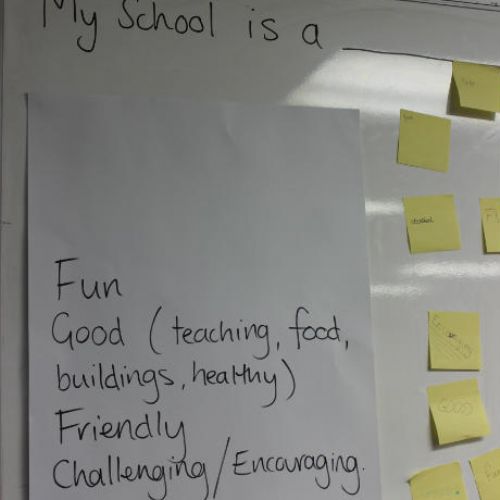 My School is a
Fun
Good (teaching, food,
buildings, healthy)
Friendly
Challenging/Encouraging.
GOOD